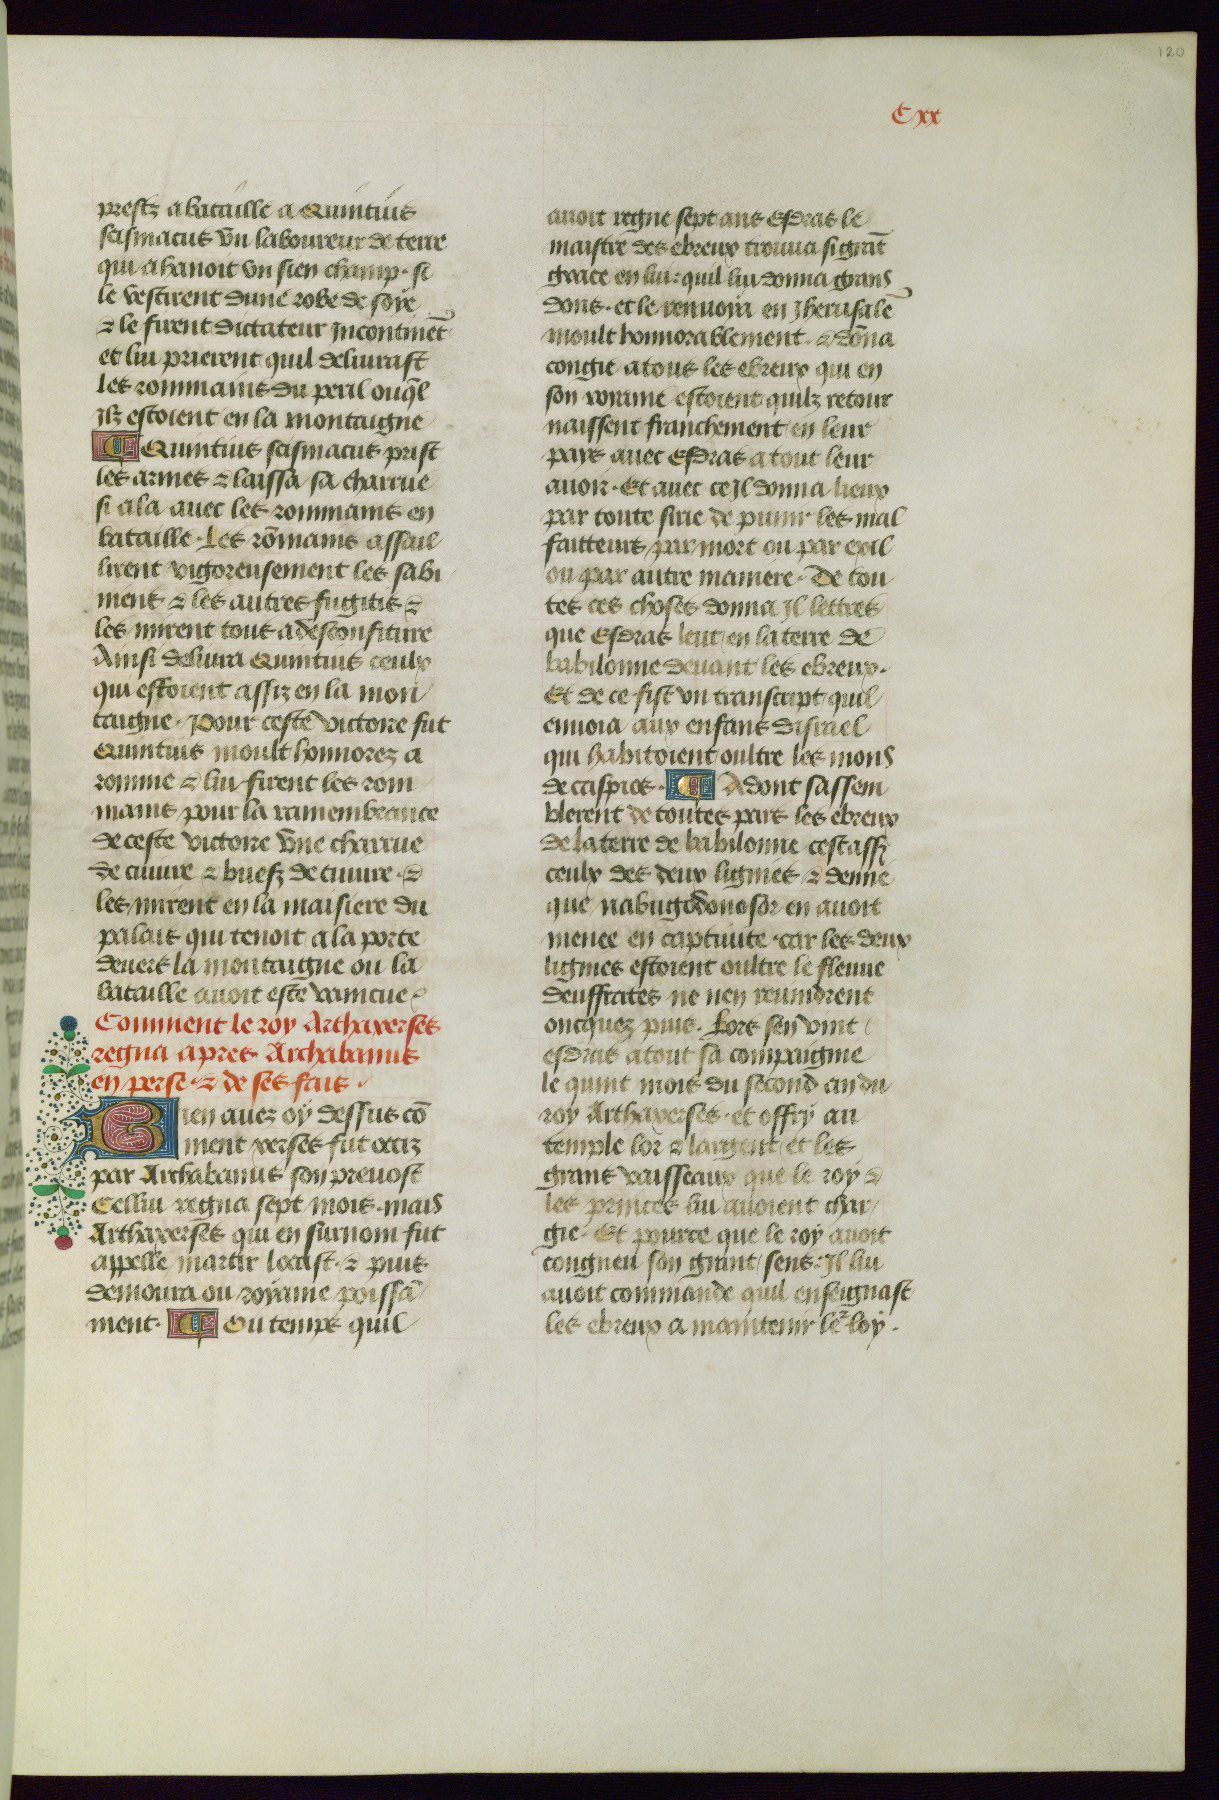 120
Cxx
prestz a bataille a Quintius
scismacus vn laboureur de terre
qui ahanoit vn sien champ. si
le vestirent dune robe de soye
⁊ le firent dictateur Incontinēt
et lui prierent quil deliurast
les rommains du peril ouq̄l
Ilz estoient en la montaigne
¶ Quintius scismacus prist
les armes ⁊ laissa sa charrue
si ala auec les rommains en
bataille. Les rōmains assail
lirent vigoreusement les sabi
niens ⁊ les autres fugitis ⁊
les mirent tous a desconfiture
Ainsi deliura Quintius ceulx
qui estoient assiz en la mon
taigne. Pour ceste victoire fut
Quintius moult honnorez a
romme ⁊ lui firent les rom
mains pour la ramembrance
de ceste victoire vne charrue
de cuiure ⁊ buefz de cuiure. ⁊
les mirent en la maisiere du
palais qui tenoit a la porte
deuers la montaigne ou la
bataille auoit este vaincue
Comment le roy Arthaxerses
regna apres Archabanus
en perse. ⁊ de ses fais.
Bien auez oÿ dessus cō
ment xerses fut occiz
par Archabanus son preuost
Cellui regna sept mois. mais
Arthaxerses qui en surnom fut
appelle martir locist. ⁊ puis
demoura ou royaume poissā
ment. ¶ Ou temps quil
auoit regne sept ans Esdras le
maistre des ebreux trouua si grāt
grace en lui. quil lui donna grans
dons. et le renuoia en Jherusalē
moult honnorablement. ⁊ dōna
congie a tous les ebreux qui en
son royaume estoient quilz retour
naissent franchement en leur
pays auec Esdras a tout leur
auoir. Et auec ce Il donna lieux
par toute sirie de punir les mal
faitteurs par mort ou par exil
ou par autre maniere. De tou
tes ces choses donna Il lettres
que Esdras leut en la terre de
babilonne deuant les ebreux.
Et de ce fist vn transcript quil
enuoia aux enfans disrael
qui habitoient oultre les mons
de caspios. ¶ Adont sassem
blerent de toutes pars les ebreux
de la terre de babilonne cestass̄
ceulx des deux lignies ⁊ demie
que nabugodonosor en auoit
menee en captiuite. car les deux
lignies estoient oultre le fleuue
deuffrates ne nen reuindrent
oncquez puis. Lors sen vint
esdras atout sa compaignie
le quint mois du second an du
roy Arthaxerses. et offry au
temple lor ⁊ largent et les
grans vaisseaux que le roy ⁊
les princes lui auoient char
gie. Et pource que le roy auoit
congneu son grant sens. Il lui
auoit commande quil enseignast
les ebreux a maintenir lēr loy.